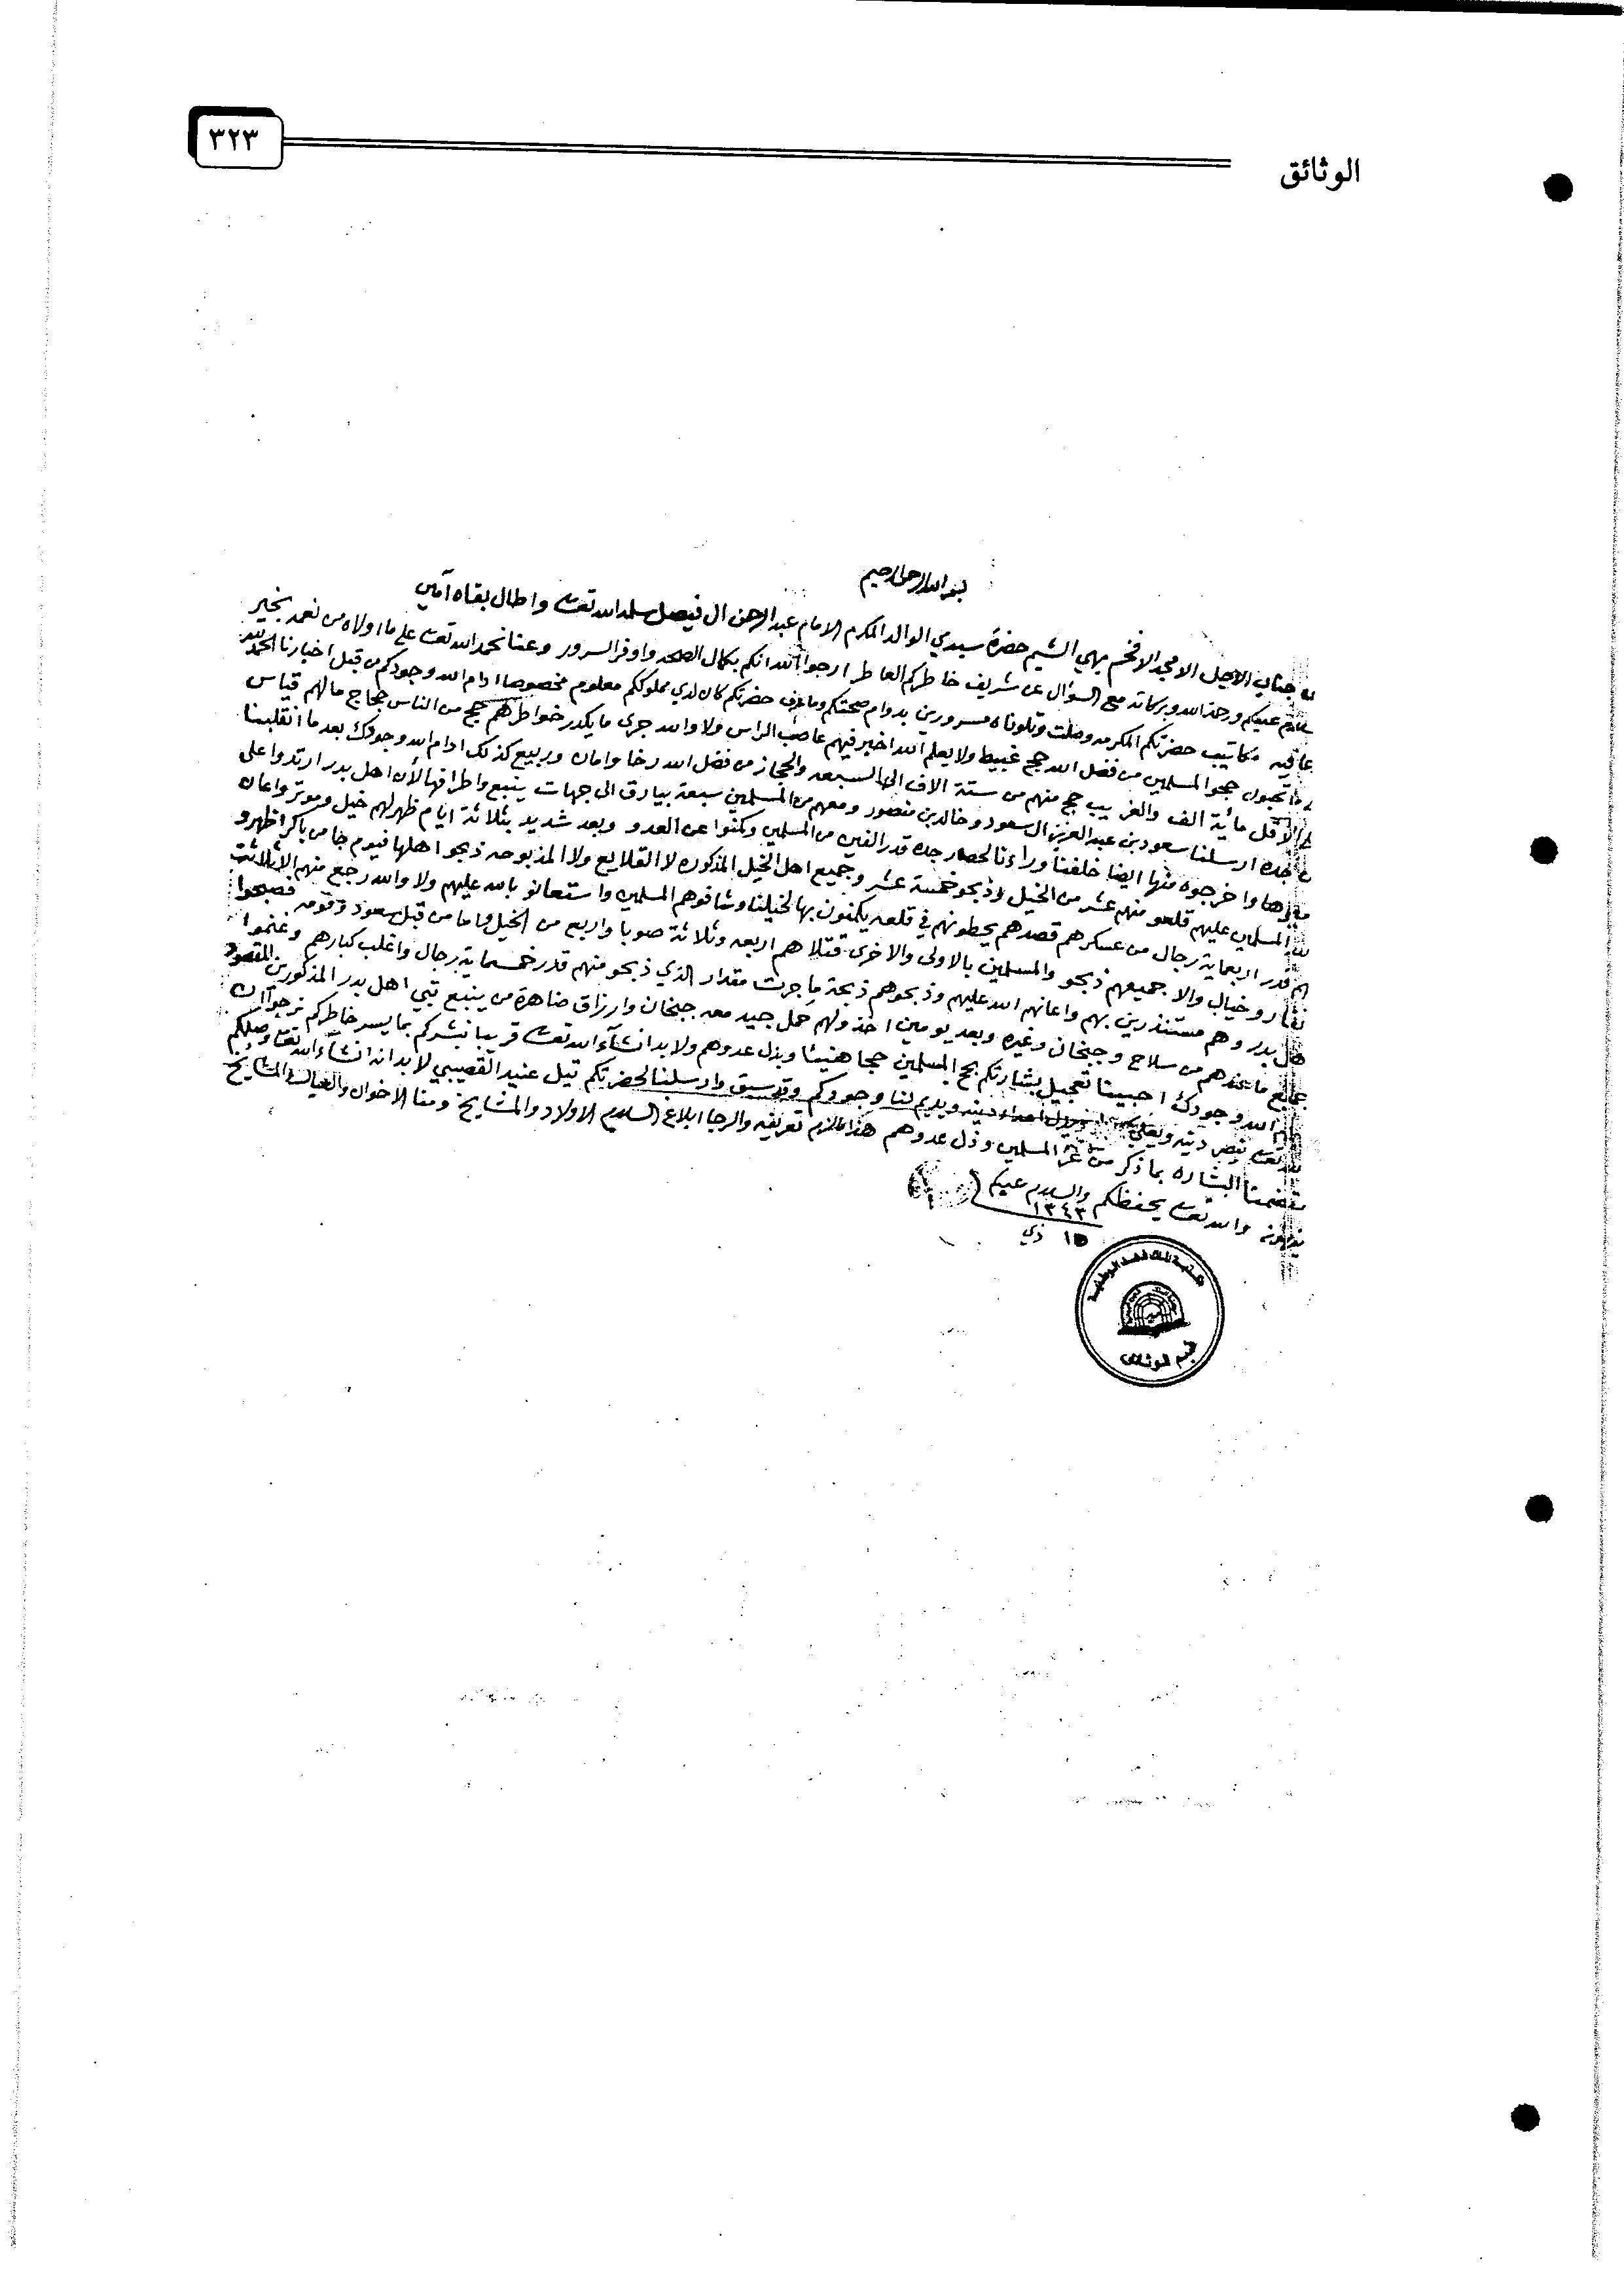 ٣٢٣
الوثائق
بسم الله الرحمن الرحيم
جناب الاجل الامجد الافخم بهي الشيم حضرة سيدي الوالد المكرم الامام عبدالرحمن ال فيصل سلمه الله تعالى واطال بقاه آمين
سلام عليكم ورحمة الله وبركاته مع السؤال عن شريف خاطركم العاطر ارجوا الله انكم بكمال الصحه واوفر السرور وعنا نحمد الله تعالى على ما اولاه من نعمه بخير
عافيه مكاتيب حضرتكم المكرمه وصلت وتلوناه مسرورين بدوام صحتكم وما عرف حضرتكم كان لدي مملوككم معلوم مخصوصا ادام الله وجودكم من قبل اخبارنا الحمدلله
ما تحبون حجوا المسلمين من فضل الله حج غبيط ولا يعلم الله اخير فيهم عاصب الراس ولا والله جرى ما يكدر خواطرهم حج من الناس حجاج مالهم قياس
الاقل مأية الف والغر يب حج منهم من ستة الاف الى السبعه والحجاز من فضل الله رخا وامان وربيع كذلك ادام الله وجودك بعد ما انقلبنا
جده ارسلنا سعود بن عبدالعزيز ال سعود وخالد بن منصور ومعهم من المسلمين سبعة بيارق الى جهات ينبع واطرافها لأن اهل بدر ارتدوا على
واخرجوه منها ايضا خلفنا وراءنا لحصار جده قدر الفين من المسلمين وكتوا عن العدو وبعد شديد بثلاثة ايام ظهر لهم خيل وموتر واعان
المسلمين عليهم قلعو منهم عشر من الخيل وذبحو خمسة عشر وجميع اهل الخيل المذكوره لا القلايع ولا المذبوحه ذبحوا اهلها فيوم جا من باكر اظهرو
قدر اربعماية رجال من عسكرهم قصدهم يحطونهم في قلعه يكمنون بها لخيلنا وشافوهم المسلمين واستعانو بالله عليهم ولا والله رجع منهم الا ثلاثت
وخيال والا جميعهم ذبحو والمسلمين بالاولى والاخرى قتلاهم اربعه وثلاثة صوبا واربع من الخيل واما من قبل سعود وقومه فصبحوا
بدر وهم مستنذرين بهم واعانهم الله عليهم وذبحوهم ذبحة ما جرت مقدار الذي ذبحو منهم قدر خمسماية رجال واغلب كبارهم وغنموا
ما عندهم من سلاح وجبخان وغيره وبعد يومين اخذو لهم حمل جيد معه جبخان وارزاق ضاهرة من ينبع تبي اهل بدر المذكورين المقصود
الله وجودك احببنا تعجيل بشارتكم بحج المسلمين حجا هنيئا وبذل عدوهم ولا بد انشاء الله تعالى قريبا نبشركم بما يسر خاطركم نرجوا ان
ينصر دينه ويعلي ويديم لنا وجودكم وقد سبق وارسلنا لحضرتكم تيل عنيد القصيبي لابد انه انشاء الله تعالى وصلكم
البشاره بما ذكر من عز المسلمين وذل عدوهم هذا مالزم تعريفه والرجا ابلاغ السلام الاولاد والمشايخ ومنا الاخوان والعيال والمشايخ
والله تعالى يحفظكم والسلام عليكم
١٣٤٣
١٥ ذي
مكتبة الملك فهد الوطنية
قسم الوثائق